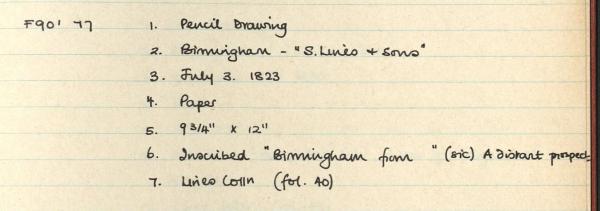 F90' 77 1. Pencil Drawing
2. Birmingham - "S. Lines + Sons"
3. July 3. 1823
4. Paper
5. 9 3/4" x 12"
6. Inscribed "Birmingham from " (sic) A distant prospect
7. Lines Colln (fol. 40)